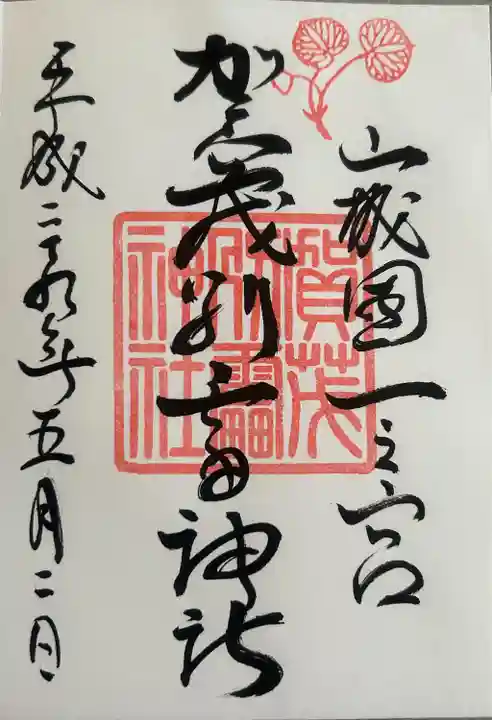 山城國一之宮
賀茂別雷神社
平成二年五月二日
賀茂
別雷
神社